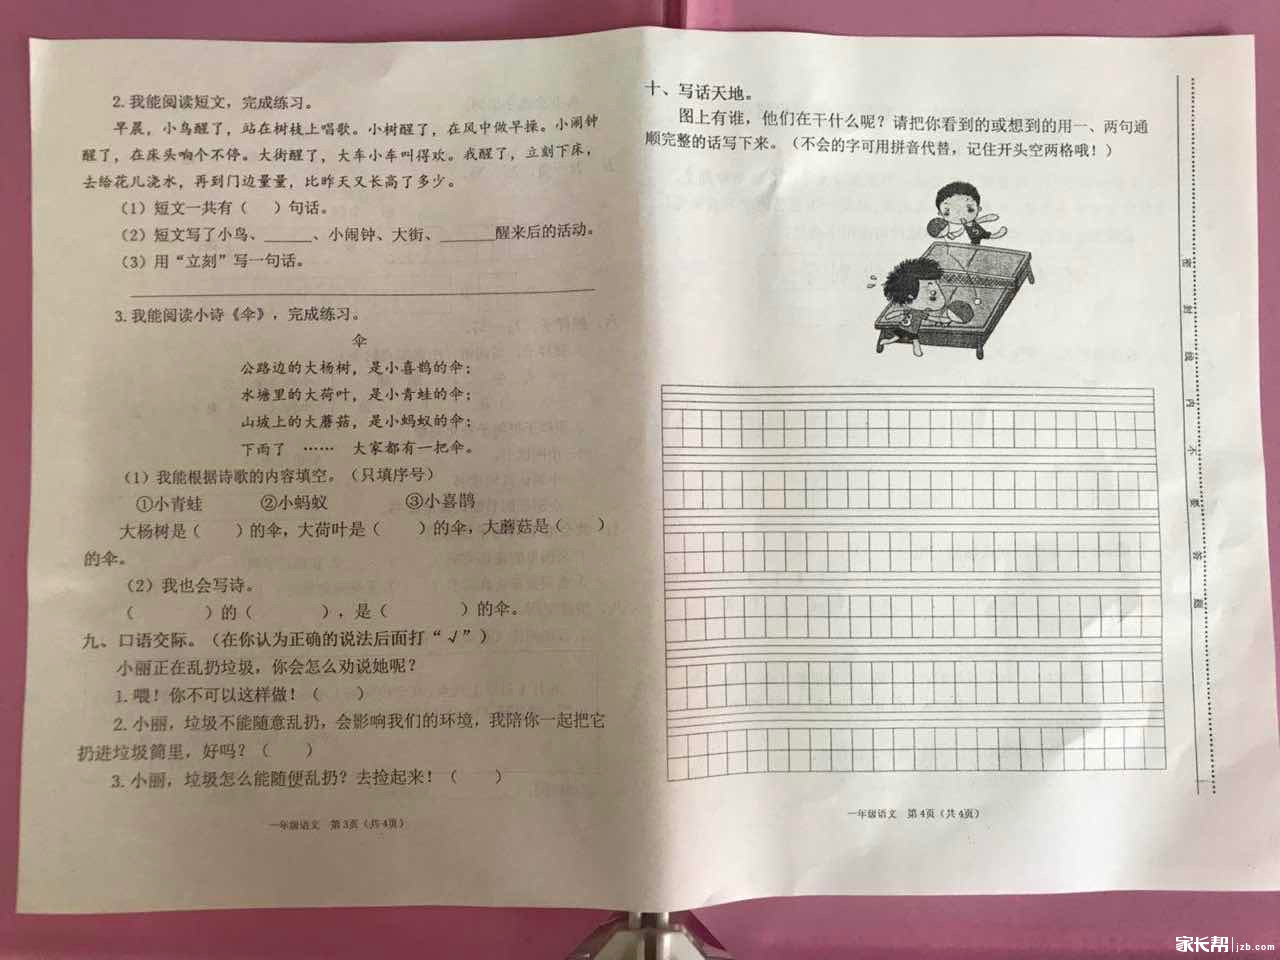 2.我能阅读短文，完成练习。
早晨，小鸟醒了，站在树枝上唱歌。小树醒了，在风中做早操。小闹钟
醒了，在床头响个不停。大街醒了，大车小车叫得欢。我醒了，立刻下床，
去给花儿浇水，再到门边量量，比昨天又长高了多少。
（1）短文一共有（ ）句话。
（2）短文写了小鸟、______、小闹钟、大街、______醒来后的活动。
（3）用“立刻”写一句话。
3.我能阅读小诗《伞》，完成练习。
伞
公路边的大杨树，是小喜鹊的伞；
水塘里的大荷叶，是小青蛙的伞；
山坡上的大蘑菇，是小蚂蚁的伞；
下雨了 …… 大家都有一把伞。
（1）我能根据诗歌的内容填空。（只填序号）
①小青蛙 ②小蚂蚁 ③小喜鹊
大杨树是（ ）的伞，大荷叶是（ ）的伞，大蘑菇是（ ）
的伞。
（2）我也会写诗。
（ ）的（ ），是（ ）的伞。
九、口语交际。（在你认为正确的说法后面打“√”）
小丽正在乱扔垃圾，你会怎么劝说她呢？
1.喂！你不可以这样做！（ ）
2.小丽，垃圾不能随意乱扔，会影响我们的环境，我陪你一起把它
扔进垃圾筒里，好吗？（ ）
3.小丽，垃圾怎么能随便乱扔？去捡起来！（ ）
一年级语文 第3页（共4页）
十、写话天地。
图上有谁，他们在干什么呢？请把你看到的或想到的用一、两句通
顺完整的话写下来。（不会的字可用拼音代替，记住开头空两格哦！）
一年级语文 第4页（共4页）
密封线内不要答题
家长帮 jzb.com